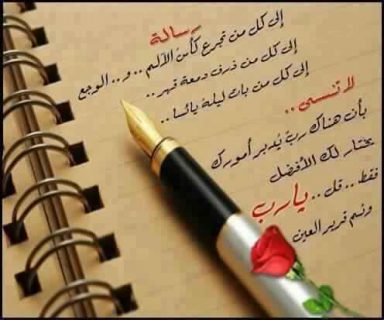 رسالة
إلى كل من تجرع كأس الألم .. و .. الوجع
إلى كل من ذرف دمعة قهر ..
إلى كل من بات ليلة يائسا ..
لا تنسى ..
بأن هناك رب يدبر أمورك
يختار لك الأفضل
فقط .. قل .. يارب
ونم قرير العين